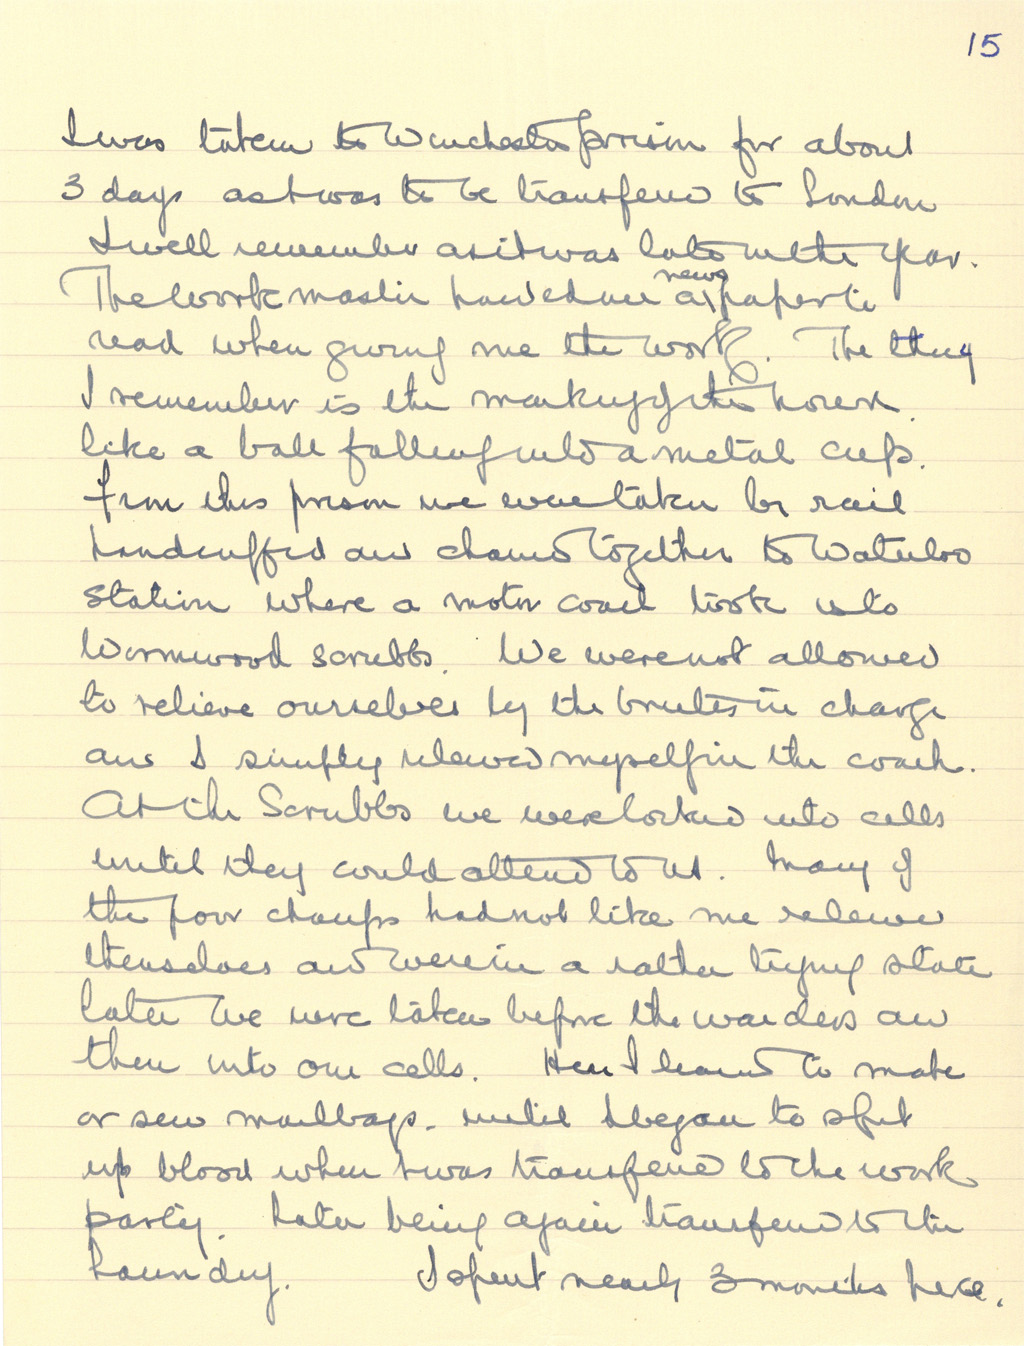 15
I was taken to Winchester prison for about
3 days as I was to be transferred to London
I well remember as it was late in the year.
The work master handed me a news paper to
read when giving me the work. The thing
I remember is the marking of the hours.
like a ball falling into a metal cup.
From this prison we were taken by rail
handcuffed and chained together to Waterloo
Station where a motor coach took us to
Wormwood Scrubbs. We were not allowed
to relieve ourselves by the brutes in charge
and I simply relieved myself in the coach.
At the Scrubbs we were locked into cells
until they could attend to us. Many of
the poor chaps had not like me relieved
themselves and were in a rather trying state
Later we were taken before the warders and
then into our cells. Here I learnt to make
or sew mailbags. until I began to spit
up blood when I was transferred to the work
party. Later being again transferred to the
Laundry. I spent nearly 3 months here.